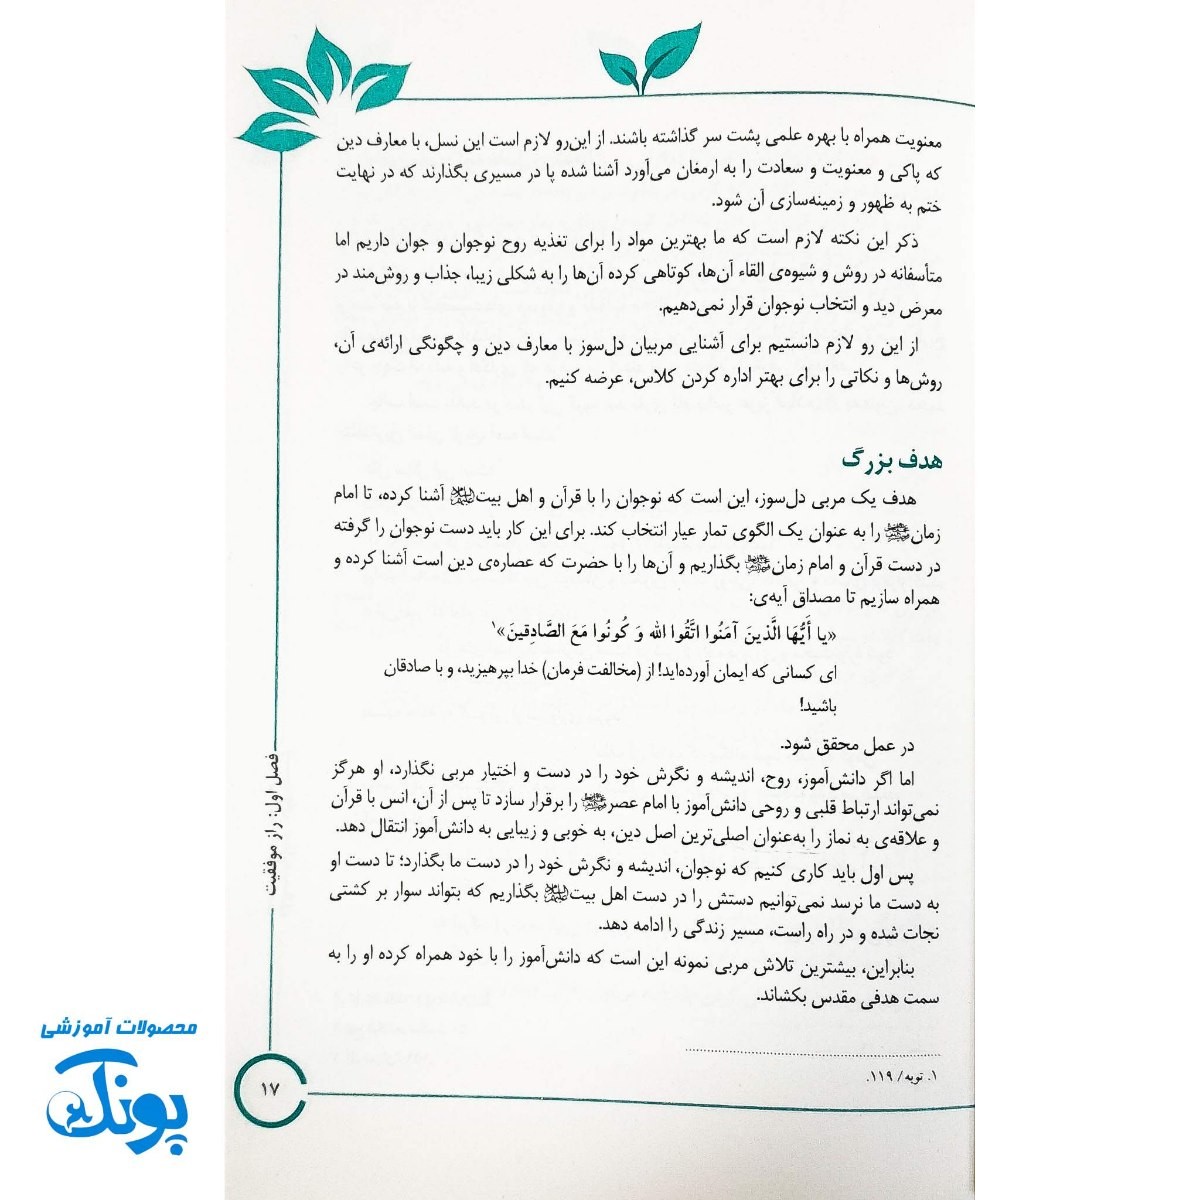 معنویت همراه با بهره علمی پشت سر گذاشته باشند. از این‌رو لازم است این نسل، با معارف دین
که پاکی و معنویت و سعادت را به ارمغان می‌آورد آشنا شده پا در مسیری بگذارند که در نهایت
ختم به ظهور و زمینه‌سازی آن شود.
ذکر این نکته لازم است که ما بهترین مواد را برای تغذیه روح نوجوان و جوان داریم اما
متأسفانه در روش و شیوه‌ی القاء آن‌ها، کوتاهی کرده آن‌ها را به شکلی زیبا، جذاب و روش‌مند در
معرض دید و انتخاب نوجوان قرار نمی‌دهیم.
از این رو لازم دانستیم برای آشنایی مربیان دل‌سوز با معارف دین و چگونگی ارائه‌ی آن،
روش‌ها و نکاتی را برای بهتر اداره کردن کلاس، عرضه کنیم.
هدف بزرگ
هدف یک مربی دل‌سوز، این است که نوجوان را با قرآن و اهل بیت آشنا کرده، تا امام
زمان را به عنوان یک الگوی تمار عیار انتخاب کند. برای این کار باید دست نوجوان را گرفته
در دست قرآن و امام زمان بگذاریم و آن‌ها را با حضرت که عصاره‌ی دین است آشنا کرده و
همراه سازیم تا مصداق آیه‌ی:
«یا أَیُّهَا الَّذینَ آمَنُوا اتَّقُوا الله وَ کُونُوا مَعَ الصَّادِقینَ»۱
ای کسانی که ایمان آورده‌اید! از (مخالفت فرمان) خدا بپرهیزید، و با صادقان
باشید!
در عمل محقق شود.
اما اگر دانش‌آموز، روح، اندیشه و نگرش خود را در دست و اختیار مربی نگذارد، او هرگز
نمی‌تواند ارتباط قلبی و روحی دانش‌آموز با امام عصر را برقرار سازد تا پس از آن، انس با قرآن
و علاقه‌ی به نماز را به‌عنوان اصلی‌ترین اصل دین، به خوبی و زیبایی به دانش‌آموز انتقال دهد.
پس اول باید کاری کنیم که نوجوان، اندیشه و نگرش خود را در دست ما بگذارد؛ تا دست او
به دست ما نرسد نمی‌توانیم دستش را در دست اهل بیت بگذاریم که بتواند سوار بر کشتی
نجات شده و در راه راست، مسیر زندگی را ادامه دهد.
بنابراین، بیشترین تلاش مربی نمونه این است که دانش‌آموز را با خود همراه کرده او را به
سمت هدفی مقدس بکشاند.
۱. توبه/ ۱۱۹.
فصل اول: راز موفقیت
۱۷
محصولات آموزشی
پونک